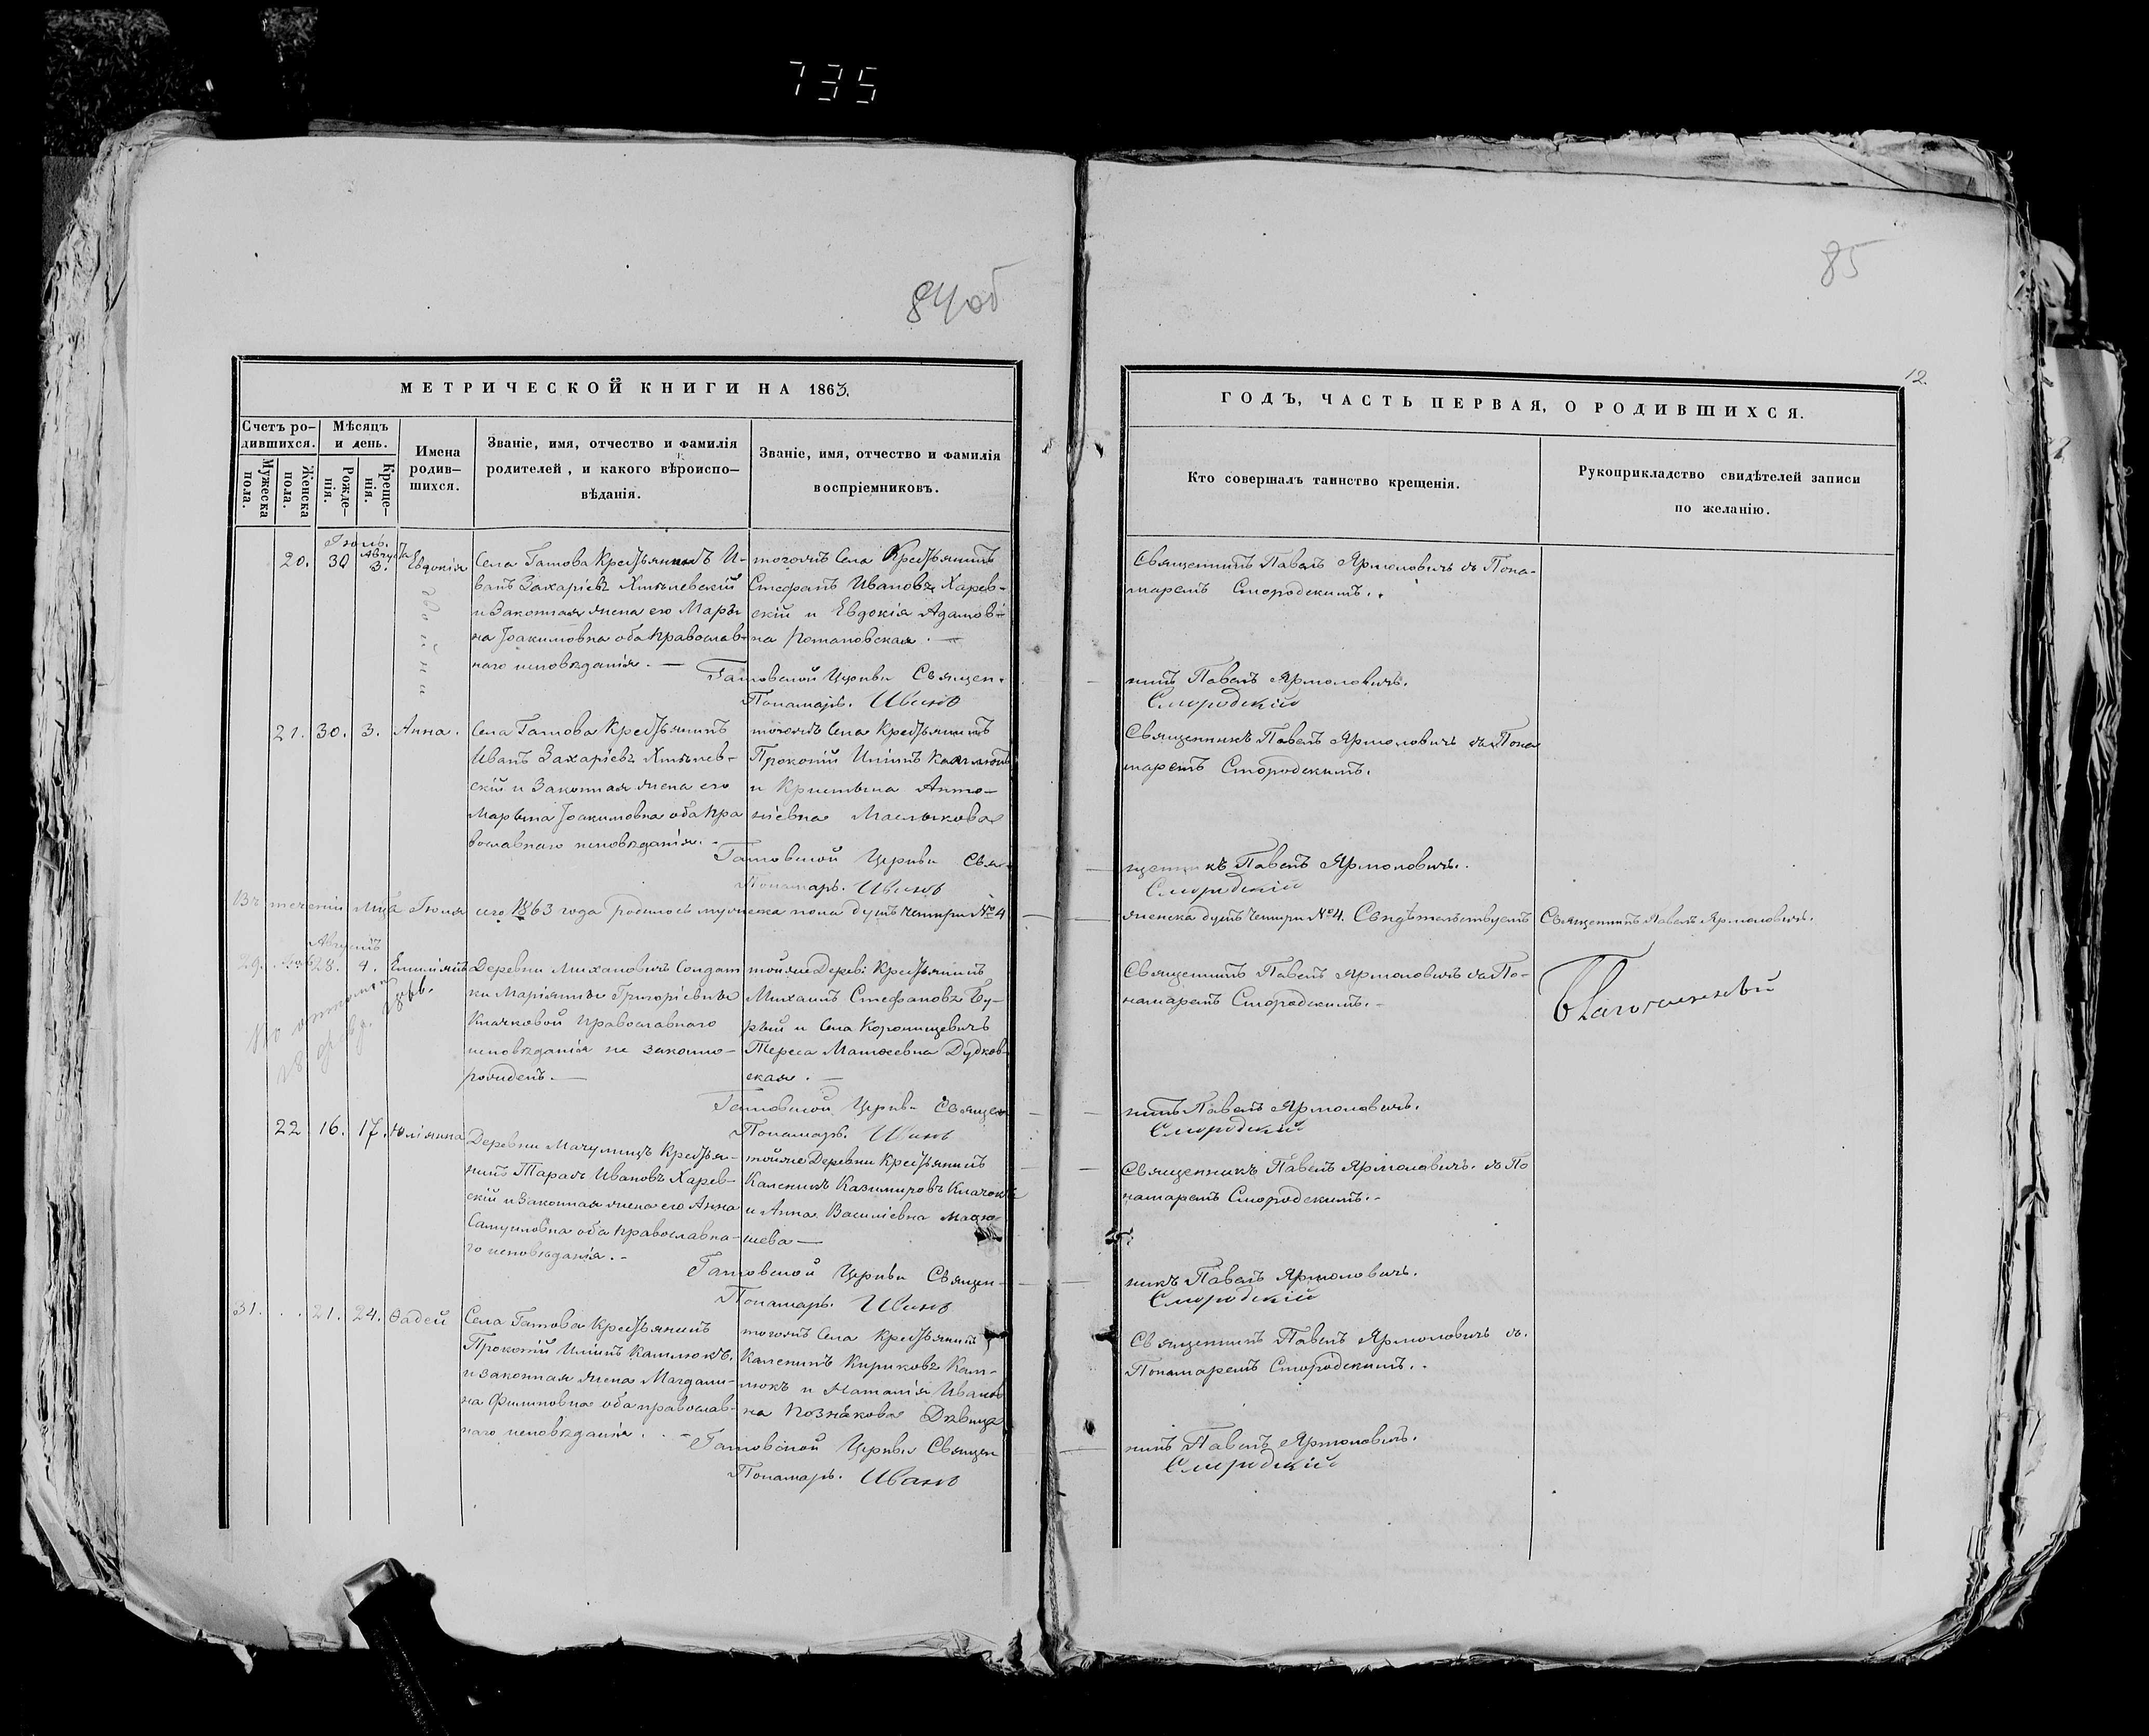 735
84об
85
12.
МЕТРИЧЕСКОЙ КНИГИ НА 1863.
Счетъ ро-
дившихся.
Мужеска
пола.
Женска
пола.
Мѣсяцъ
и день.
Рожде-
нія.
Креще-
нія.
Имена
родив-
шихся.
Званіе, имя, отчество и фамилія
родителей, и какого вѣроиспо-
вѣданія.
Званіе, имя, отчество и фамилія
воспріемниковъ.
ГОДЪ, ЧАСТЬ ПЕРВАЯ, О РОДИВШИХСЯ.
Кто совершалъ таинство крещенія.
Рукоприкладство свидѣтелей записи
по желанію.
Іюль. Августа
20. 30 3. Евдокія
двойни
Села Гатова Крестьянинъ И-
ванъ Захаріевъ Хмѣлевскій
и Законная жена его Марья-
на Іоакимовна оба православ-
наго исповѣданія. —
тогожъ Села Крестьянинъ
Стефанъ Ивановъ Харев-
скій и Евдокія Адамов-
на Романовская. —
Священникъ Павелъ Ярмоловичъ съ Поно-
маремъ Смородскимъ.
Гатовской Церкви Священ-
никъ Павелъ Ярмоловичъ.
Пономарь. Иванъ
Смородскій
21. 30. 3. Анна.
Села Гатова Крестьянинъ
Иванъ Захаріевъ Хмѣлев-
скій и Законная жена его
Марьяна Іоакимовна оба пра
вославнаго исповѣданія. -
тогожъ Села Крестьянинъ
Прокопій Ильинъ Камлюкъ
и Кристына Анто-
ніевна Маслыкова
Священникъ Павелъ Ярмоловичъ съ Поно
маремъ Смородскимъ.
Гатовской Церкви Свя-
щенникъ Павелъ Ярмоловичъ.
Пономарь. Иванъ
Смородскій
Въ теченіи Мца Іюля сего 1863 года родилось мужеска пола душъ четыри №4
женска душъ четыри №4. Свидѣтельствуетъ Священникъ Павелъ Ярмоловичъ.
Августъ
28. 4.
Деревни Михановичъ Солдат
ки Маріянны Григоріевны
Клачковой православнаго
исповѣданія не законно-
рожденъ. —
тойже Дерев: Крестьянинъ
Михаилъ Стефановъ Бу-
рый и Села Королищевичъ
Тереса Матѳеевна Дудков-
ская. —
Священникъ Павелъ Ярмоловичъ съ По-
номаремъ Смородскимъ. -
Благочинный
Гатовской Церкви Священ
никъ Павелъ Ярмоловичъ.
Пономарь. Иванъ
Смородскій
22 16. 17. Юліянна
Деревни Мачулищъ Крестья-
нинъ Тарасъ Ивановъ Харев-
скій и Законная жена его Анна
Самуиловна оба православна-
го исповѣданія. -
тойже Деревни Крестьянинъ
Каленикъ Казимировъ Клачокъ
и Анна Василіевна
Священникъ Павелъ Ярмоловичъ. съ По
номаремъ Смородскимъ. -
Гатовской Церкви Священ-
никъ Павелъ Ярмоловичъ.
Пономарь. Иванъ
Смородскій
31. 21. 24. Ѳадей
Села Гатова Крестьянинъ
Прокопій Ильинъ Камлюкъ.
и законная жена Магдали-
на Филиповна оба православ-
наго исповѣданія. -
тогожъ Села Крестьянинъ
Каленикъ Кириковъ Кам-
люкъ и Наталія Иванов
на Познякова Дѣвица
Священникъ Павелъ Ярмоловичъ съ
Пономаремъ Смородскимъ.
Гатовской Церкви Священ
никъ Павелъ Ярмоловичъ.
Пономарь. Иванъ
Смородскій